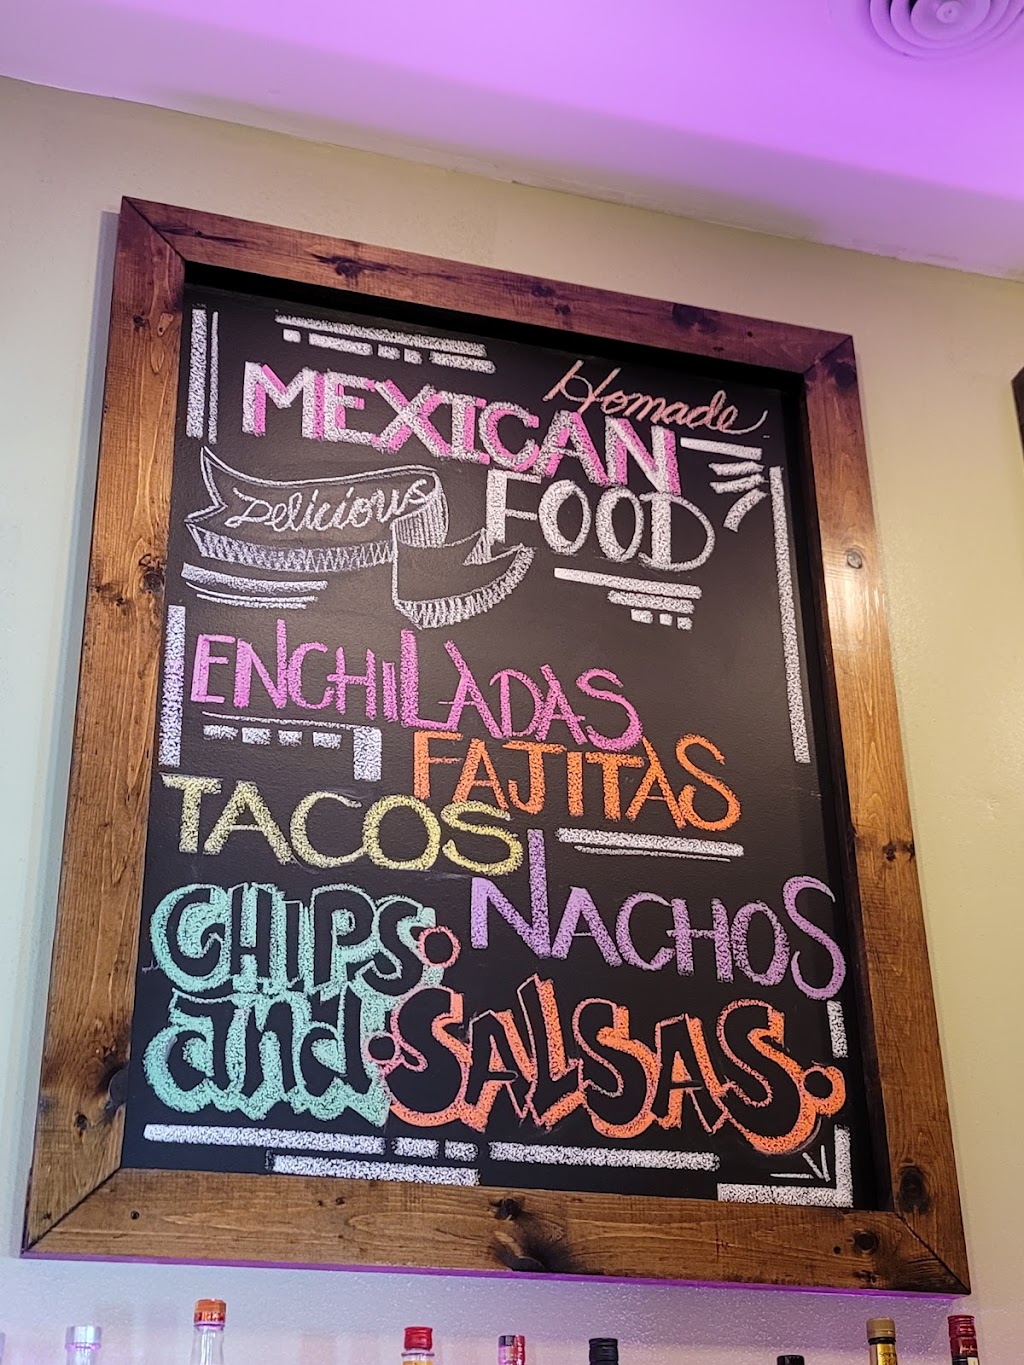 Homade
MEXICAN
FOOD
Delicious
ENCHiLADAS
FAJITAS
TACOS
NACHOS
CHIPS
and SALSAS